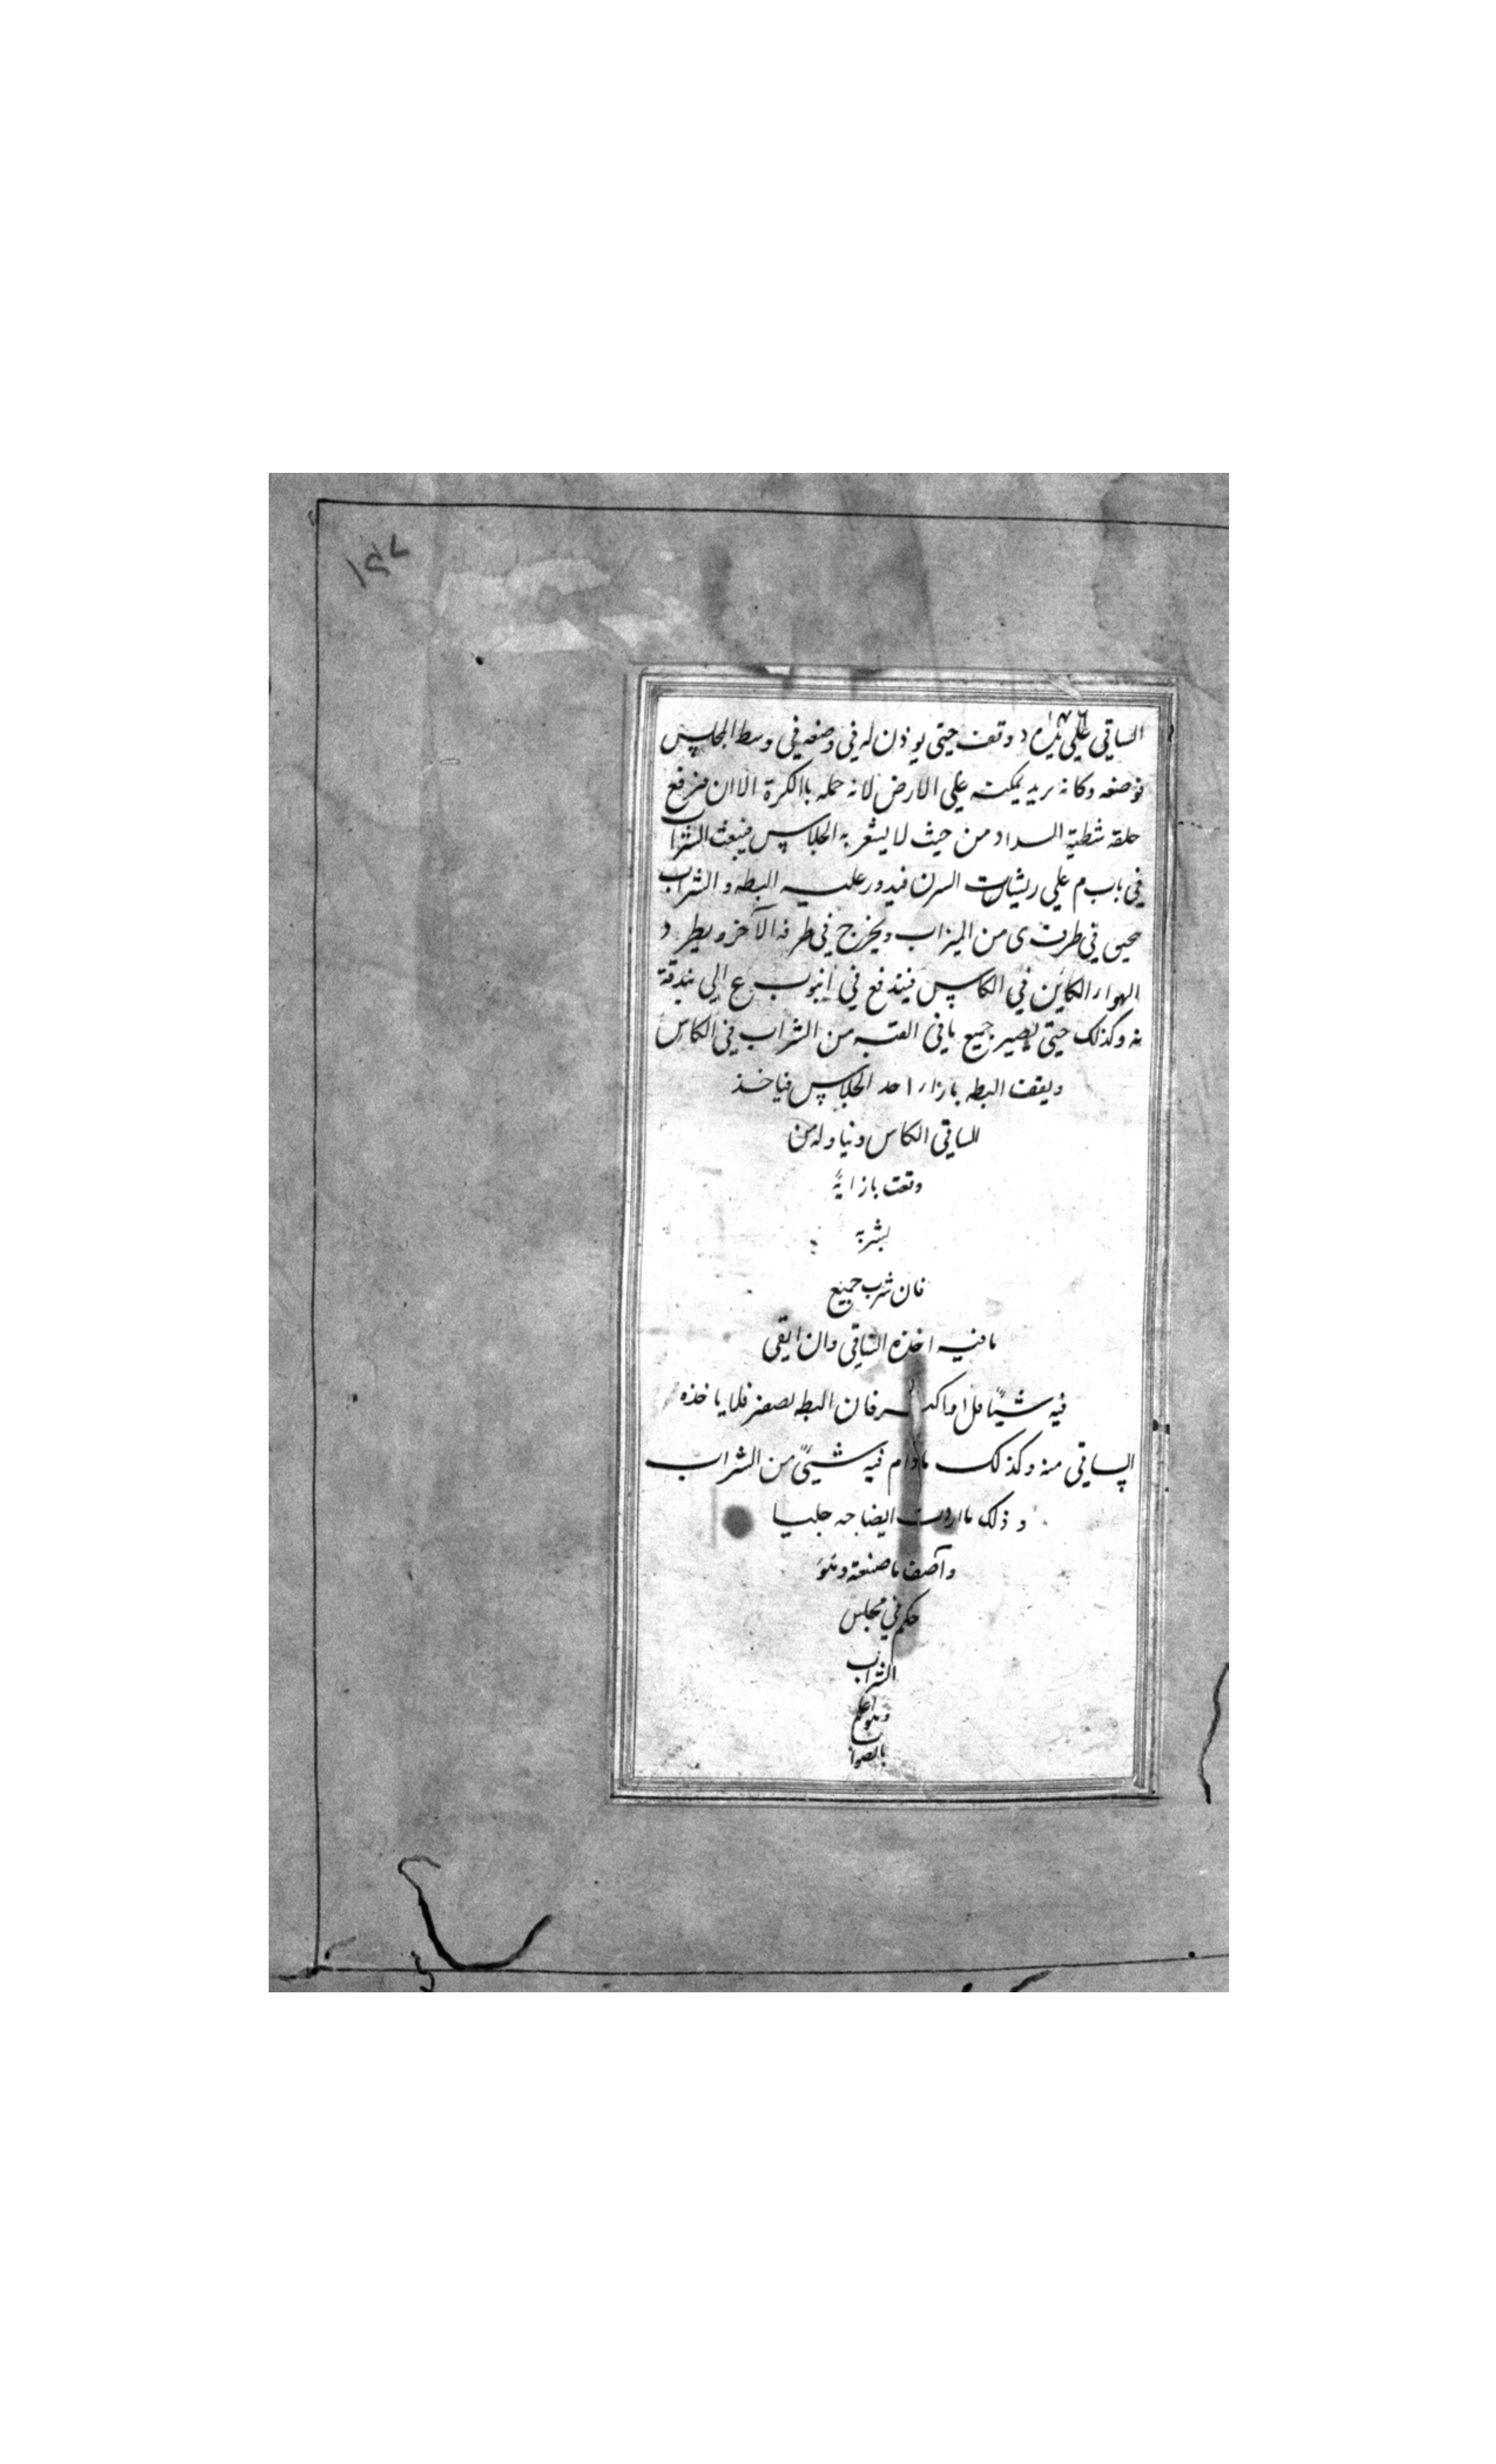 ١٤٧
١٤٦
الساقي علي يده و وقف حتي يوذن له في وضعه في وسط المجلس
فوضعه وكانه يريد يمكنه علي الارض لانه حمله بالكرة الا ان فرفع
حلقه شطية السداد من حيث لا يشعر به الجلاس فينبعث الشراب
في باب م علي ريشات السرن فيدور عليه البطه و الشراب
في طرف ي من الميزاب ويخرج في طرفه الآخر ويطرد
الهواء الكاين في الكاس فيندفع في انبوب ع الي بندقة
نه وكذلك حتي يصير جميع ما في القبه من الشراب في الكاس
ويقف البطه بازاء احد الجلاس فياخذ
الساقي الكاس ويناوله من
وقعت بازايه
يشربه
فان شرب جميع
ما فيه اخذه الساقي وان ابقي
فيه شيئا قل او اكثر فان البطه تصفر فلا ياخذه
الساقي منه وكذلك مادام فيه شيئ من الشراب
و ذلك ما اردت ايضاحه جليا
وآصف ما صنعته وهو
حكم في مجلس
الشراب
وهو اعلم
بالصواب